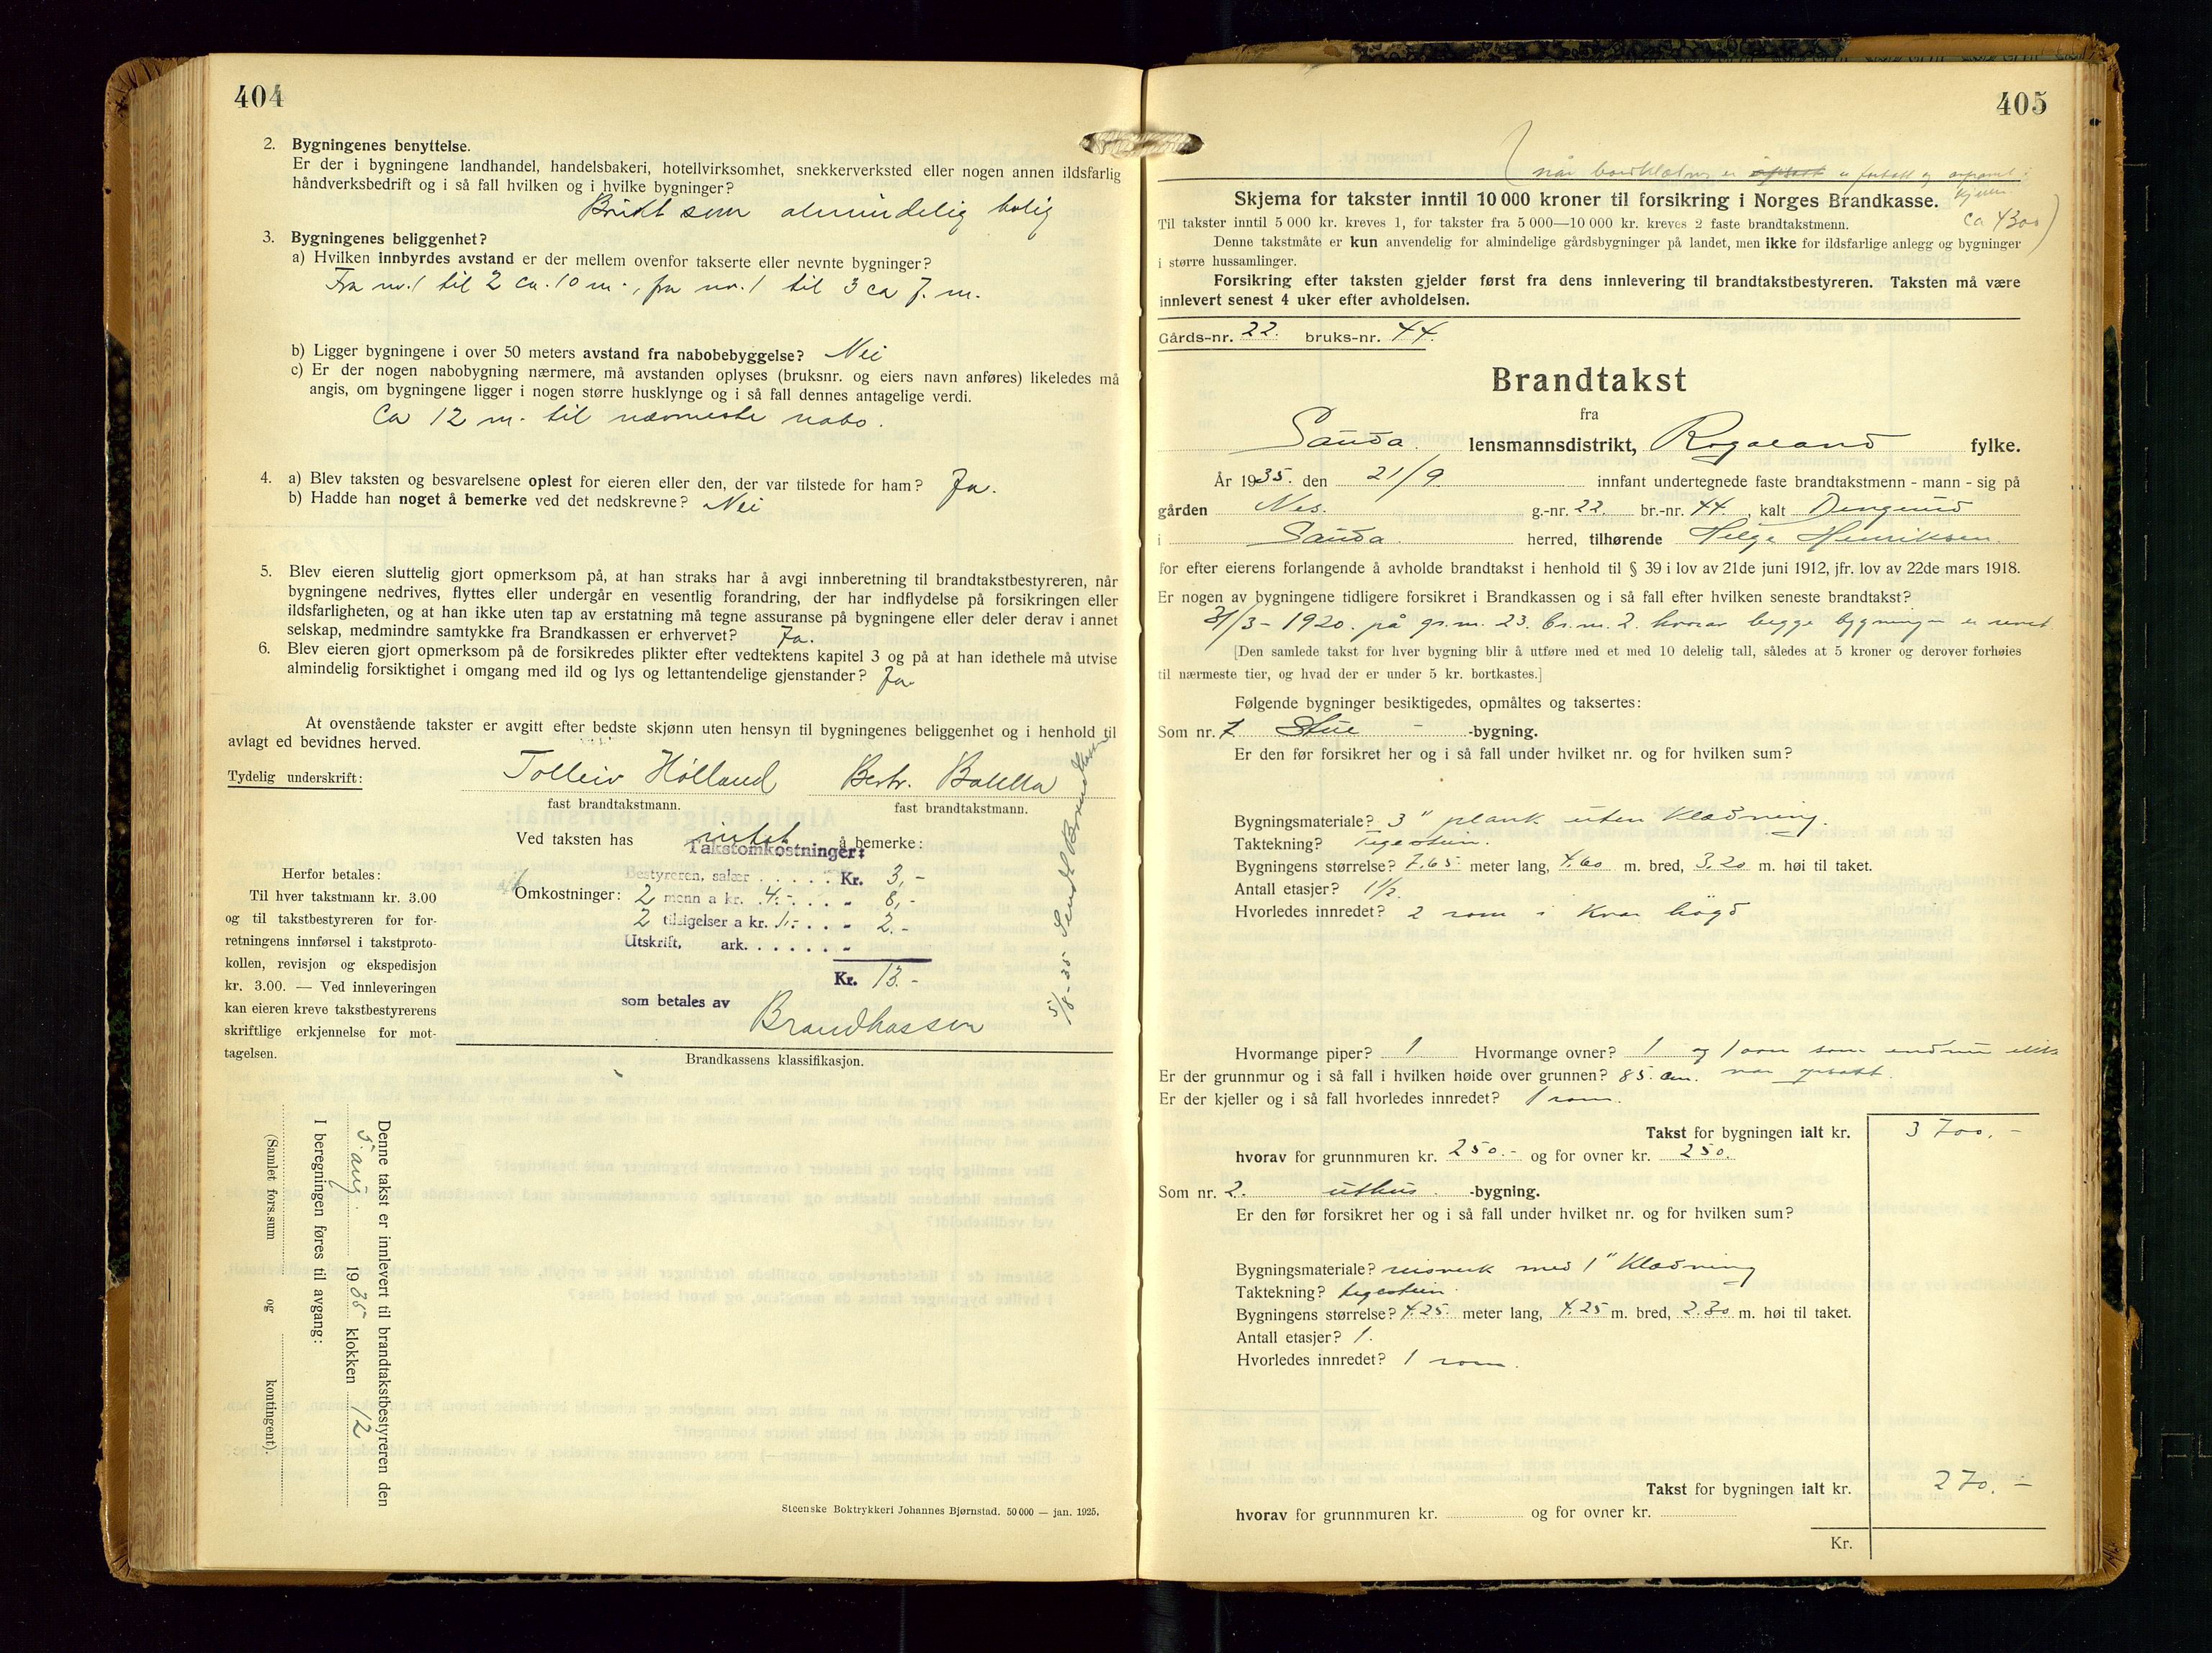 404
2. Bygningenes benyttelse.
Er der i bygningene landhandel, handelsbakeri, hotellvirksomhet, snekkerverksted eller nogen annen ildsfarlig
håndverksbedrift og i så fall hvilken og i hvilke bygninger?
Brukt som almindelig bolig
3. Bygningenes beliggenhet?
a) Hvilken innbyrdes avstand er der mellem ovenfor takserte eller nevnte bygninger?
Fra nr. 1 til 2 ca. 10 m., fra nr. 1 til 3 ca 7. m.
b) Ligger bygningene i over 50 meters avstand fra nabobebyggelse? Nei
c) Er der nogen nabobygning nærmere, må avstanden oplyses (bruksnr. og eiers navn anføres) likeledes må
angis, om bygningene ligger i nogen større husklynge og i så fall dennes antagelige verdi.
Ca 12 m. til nærmeste nabo.
4. a) Blev taksten og besvarelsene oplest for eieren eller den, der var tilstede for ham? Ja.
b) Hadde han noget å bemerke ved det nedskrevne? Nei
5. Blev eieren sluttelig gjort opmerksom på, at han straks har å avgi innberetning til brandtakstbestyreren, når
bygningene nedrives, flyttes eller undergår en vesentlig forandring, der har indflydelse på forsikringen eller
ildsfarligheten, og at han ikke uten tap av erstatning må tegne assuranse på bygningene eller deler derav i annet
selskap, medmindre samtykke fra Brandkassen er erhvervet? Ja.
6. Blev eieren gjort opmerksom på de forsikredes plikter efter vedtektens kapitel 3 og på at han idethele må utvise
almindelig forsiktighet i omgang med ild og lys og lettantendelige gjenstander? Ja
At ovenstående takster er avgitt efter bedste skjønn uten hensyn til bygningenes beliggenhet og i henhold til
avlagt ed bevidnes herved.
Tydelig underskrift: Tolleiv Hølland Bertr.
fast brandtakstmann. fast brandtakstmann.
Ved taksten has intet å bemerke:
Takstomkostninger:
Bestyreren, salær . . . . . Kr. 3,-
Omkostninger: 2 menn a kr. 4.- . . . „ 8,-
2 tilsigelser a kr. 1.- . . „ 2.-
Utskrift, ark. . . . . . „
Kr. 13.-
som betales av Brandkassen
5/8-35 Sendt Brandkassen
Herfor betales:
Til hver takstmann kr. 3.00
og til takstbestyreren for for-
retningens innførsel i takstproto-
kollen, revisjon og ekspedisjon
kr. 3.00. — Ved innleveringen
kan eieren kreve takstbestyrerens
skriftlige erkjennelse for mot-
tagelsen.
Brandkassens klassifikasjon.
Denne takst er innlevert til brandtakstbestyreren den
5. aug. 1935 klokken 12
I beregningen føres til avgang:
(Samlet fors.sum og kontingent).
Steenske Boktrykkeri Johannes Bjørnstad. 50 000 — jan. 1925.
405
når er
ca 4300)
Skjema for takster inntil 10 000 kroner til forsikring i Norges Brandkasse.
Til takster inntil 5 000 kr. kreves 1, for takster fra 5 000—10 000 kr. kreves 2 faste brandtakstmenn.
Denne takstmåte er kun anvendelig for almindelige gårdsbygninger på landet, men ikke for ildsfarlige anlegg og bygninger
i større hussamlinger.
Forsikring efter taksten gjelder først fra dens innlevering til brandtakstbestyreren. Taksten må være
innlevert senest 4 uker efter avholdelsen.
Gårds-nr. 22. bruks-nr. 44.
Brandtakst
fra
Sauda. lensmannsdistrikt, Rogaland fylke.
År 1935. den 21/9. innfant undertegnede faste brandtakstmenn - mann - sig på
gården Nes. g.-nr. 22. br.-nr. 44. , kalt
i Sauda. herred, tilhørende Helge Henriksen.
for efter eierens forlangende å avholde brandtakst i henhold til § 39 i lov av 21de juni 1912, jfr. lov av 22de mars 1918.
Er nogen av bygningene tidligere forsikret i Brandkassen og i så fall efter hvilken seneste brandtakst?
31/3-1920. på gr.nr. 23. br.nr. 2. hvorav begge bygninger er revet.
[Den samlede takst for hver bygning blir å utføre med et med 10 delelig tall, således at 5 kroner og derover forhøies
til nærmeste tier, og hvad der er under 5 kr. bortkastes.]
Følgende bygninger besiktigedes, opmåltes og taksertes:
Som nr. 1 Stue -bygning.
Er den før forsikret her og i så fall under hvilket nr. og for hvilken sum?
Bygningsmateriale? 3" plank uten Klædning.
Taktekning? Teglstein.
Bygningens størrelse? 7,65. meter lang, 4,60 m. bred, 3,20 m. høi til taket.
Antall etasjer? 1½.
Hvorledes innredet? 2 rom i kvar høgd
Hvormange piper? 1 Hvormange ovner? 1 og 1 ovn som endnu ikke
Er der grunnmur og i så fall i hvilken høide over grunnen? 85. cm. var opsatt.
Er der kjeller og i så fall hvorledes innredet? 1 rom.
Takst for bygningen ialt kr. 3700.-
hvorav for grunnmuren kr. 250.- og for ovner kr. 250.
Som nr. 2. uthus. -bygning.
Er den før forsikret her og i så fall under hvilket nr. og for hvilken sum?
Bygningsmateriale? reisverk med 1" Klædning
Taktekning? teglstein.
Bygningens størrelse? 4.25. meter lang, 4.25 m. bred, 2.30 m. høi til taket.
Antall etasjer? 1.
Hvorledes innredet? 1 rom.
Takst for bygningen ialt kr. 270.-
hvorav for grunnmuren kr. og for ovner kr.
Kr.